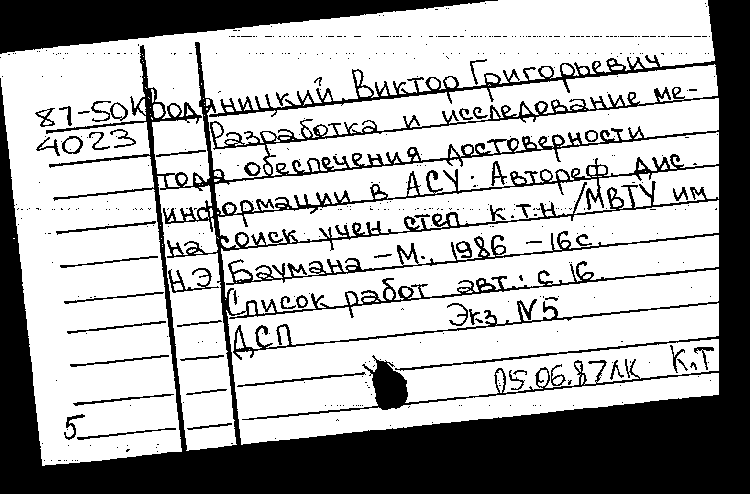 87-50К Водяницкий, Виктор Григорьевич
4023 Разработка и исследование ме-
тода обеспечения достоверности
информации в АСУ: Автореф. дис.
на соиск. учен. степ. к.т.н. /МВТУ им
Н.Э. Баумана – М., 1986 – 16с.
Список работ авт.: с. 16.
ДСП Экз. N5
05.06.87ЛК К.Т
5